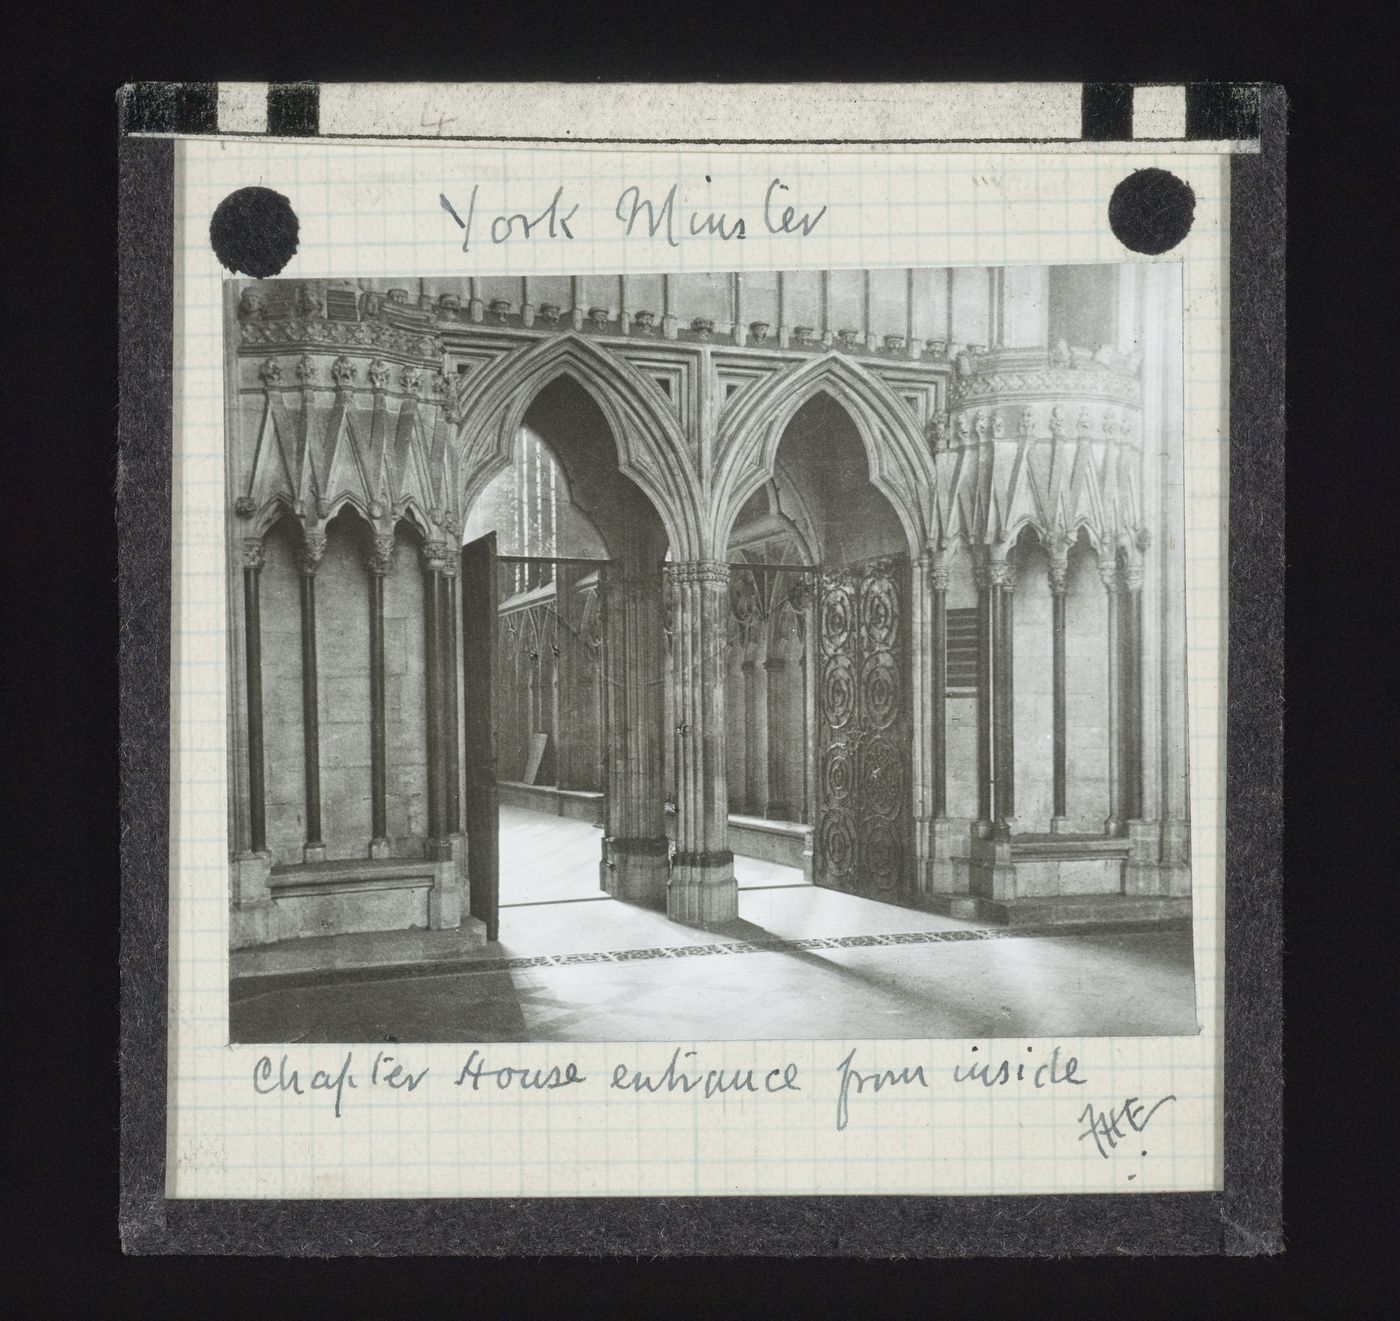 4
York Minster
Chapter House entrance from inside
FHE